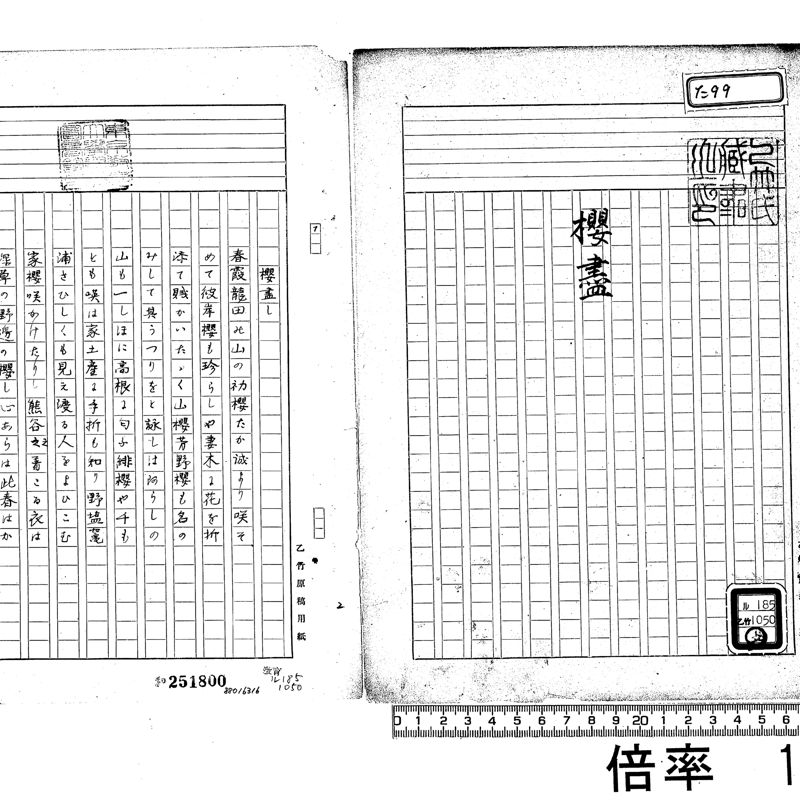 た99
乙竹氏
蔵書
櫻盡
ル 185
乙竹1050
櫻盡し
春霞龍田の山の初櫻たか誠より咲そ
めて彼岸櫻も珍らしや妻木に花を折
添て賎かいたゝく山櫻芳野櫻も名の
みして其うつりをと詠しは河らしの
山も一しほに高根に匂ふ緋櫻や千も
とも咲は家土産に手折も知り野塩竈
浦さひしくも見え渡る人をよひこむ
家櫻咲かけたりし熊谷之着こる衣は
の野邊の櫻し心あらは此春はか
乙竹原稿用紙
1
2
251800
88016316
ル185
1050
0 1 2 3 4 5 6 7 8 9 20 1 2 3 4 5 6
倍率 1